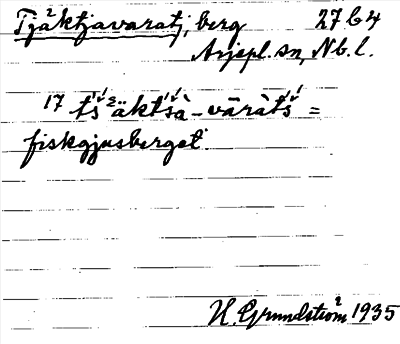 Tjäktjavaratj, berg 27 b 4
Arjepl. sn, Nb. l.
17 tš́äktšà-vāràtš́ =
fiskgjusberget.
H. Grundström 1935